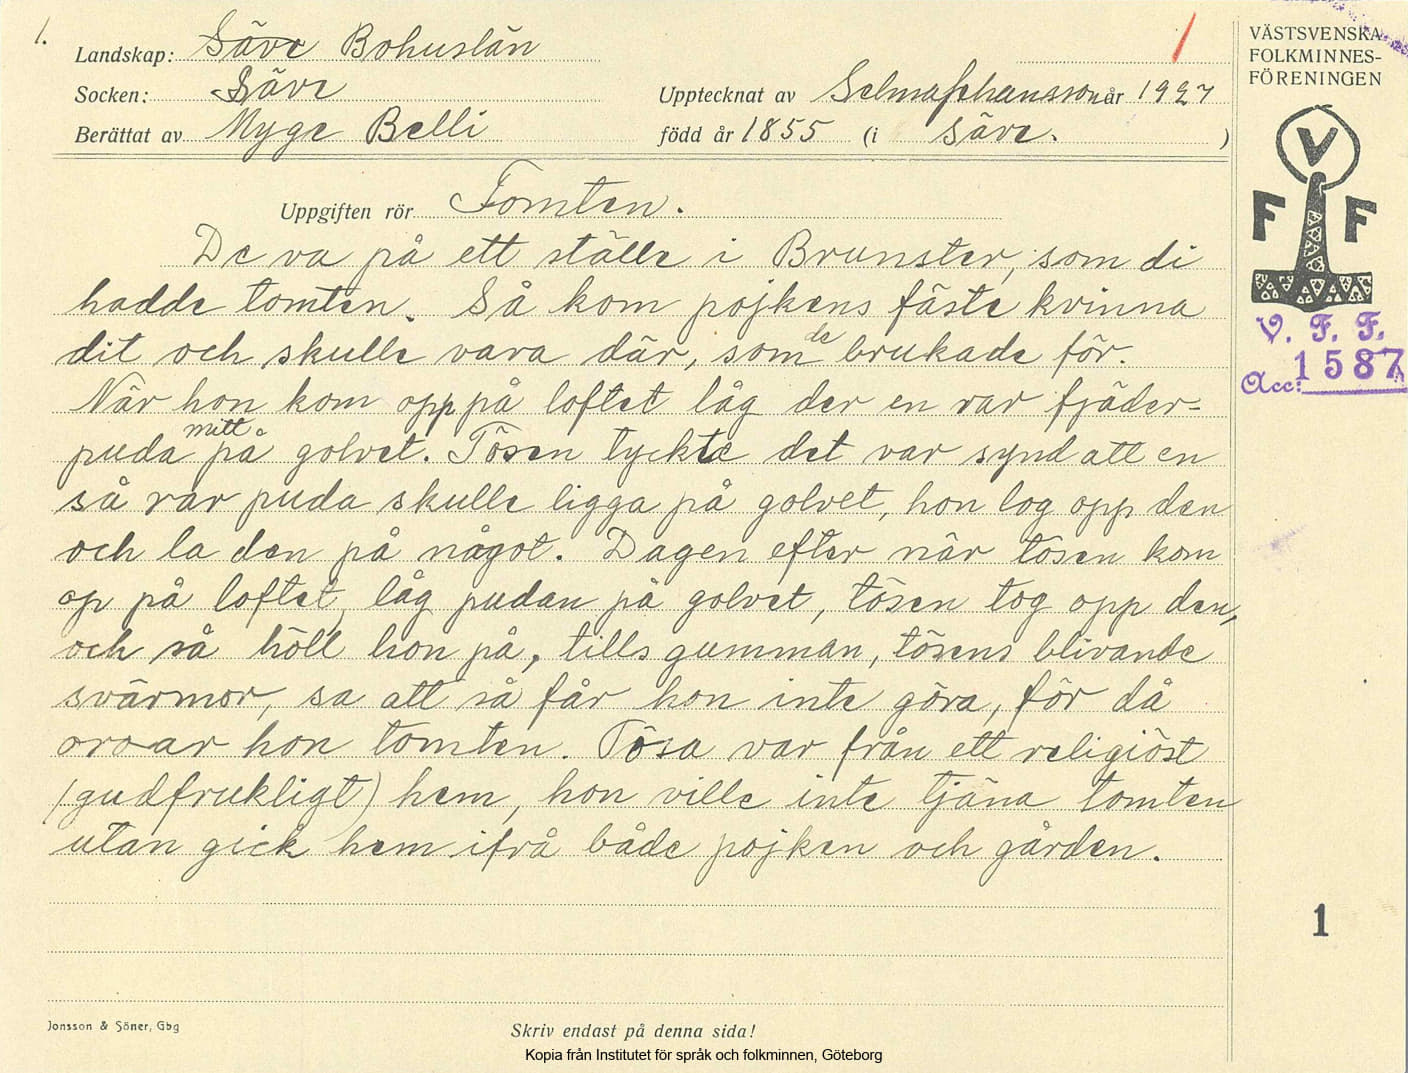 1.
Landskap: Säve Bohuslän
1
Socken: Säve
Upptecknat av Selma Johansson år 1927
Berättat av Myge Belli
född år 1855 (i Säve. )
Uppgiften rör Tomten.
De va på ett ställe i Brunster, som di
hadde tomten. Så kom pojkens fäste kvinna
dit och skulle vara där, som de brukade för.
När hon kom opp på loftet låg der en rar fjäder-
puda mitt på golvet. Tösen tyckte det var synd att en
så rar puda skulle ligga på golvet, hon log opp den
och la den på något. Dagen efter när tösen kom
op på loftet, låg pudan på golvet, tösen tog opp den,
och så höll hon på, tills gumman, tösens blivande
svärmor, sa att så får hon inte göra, för då
oroar hon tomten. Tösa var från ett religiöst
(gudfruktligt) hem, hon ville inte tjäna tomten
utan gick hem ifrå både pojken och gården.
VÄSTSVENSKA
FOLKMINNES-
FÖRENINGEN
V
F F
V. F. F.
Acc: 1587
1
Jonsson & Söner, Gbg
Skriv endast på denna sida!
Kopia från Institutet för språk och folkminnen, Göteborg